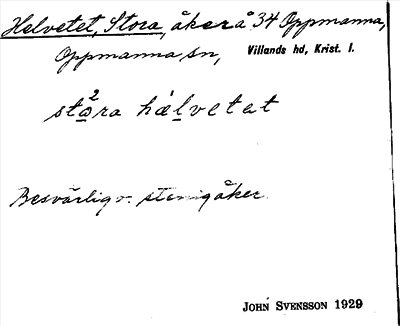 Helvetet, Stora, åker å 34 Oppmanna,
Oppmanna sn, Villands hd, Krist. l.
stɑ̀²ra hælvetat
Besvärlig o. stenig åker.
JOHN SVENSSON 1929